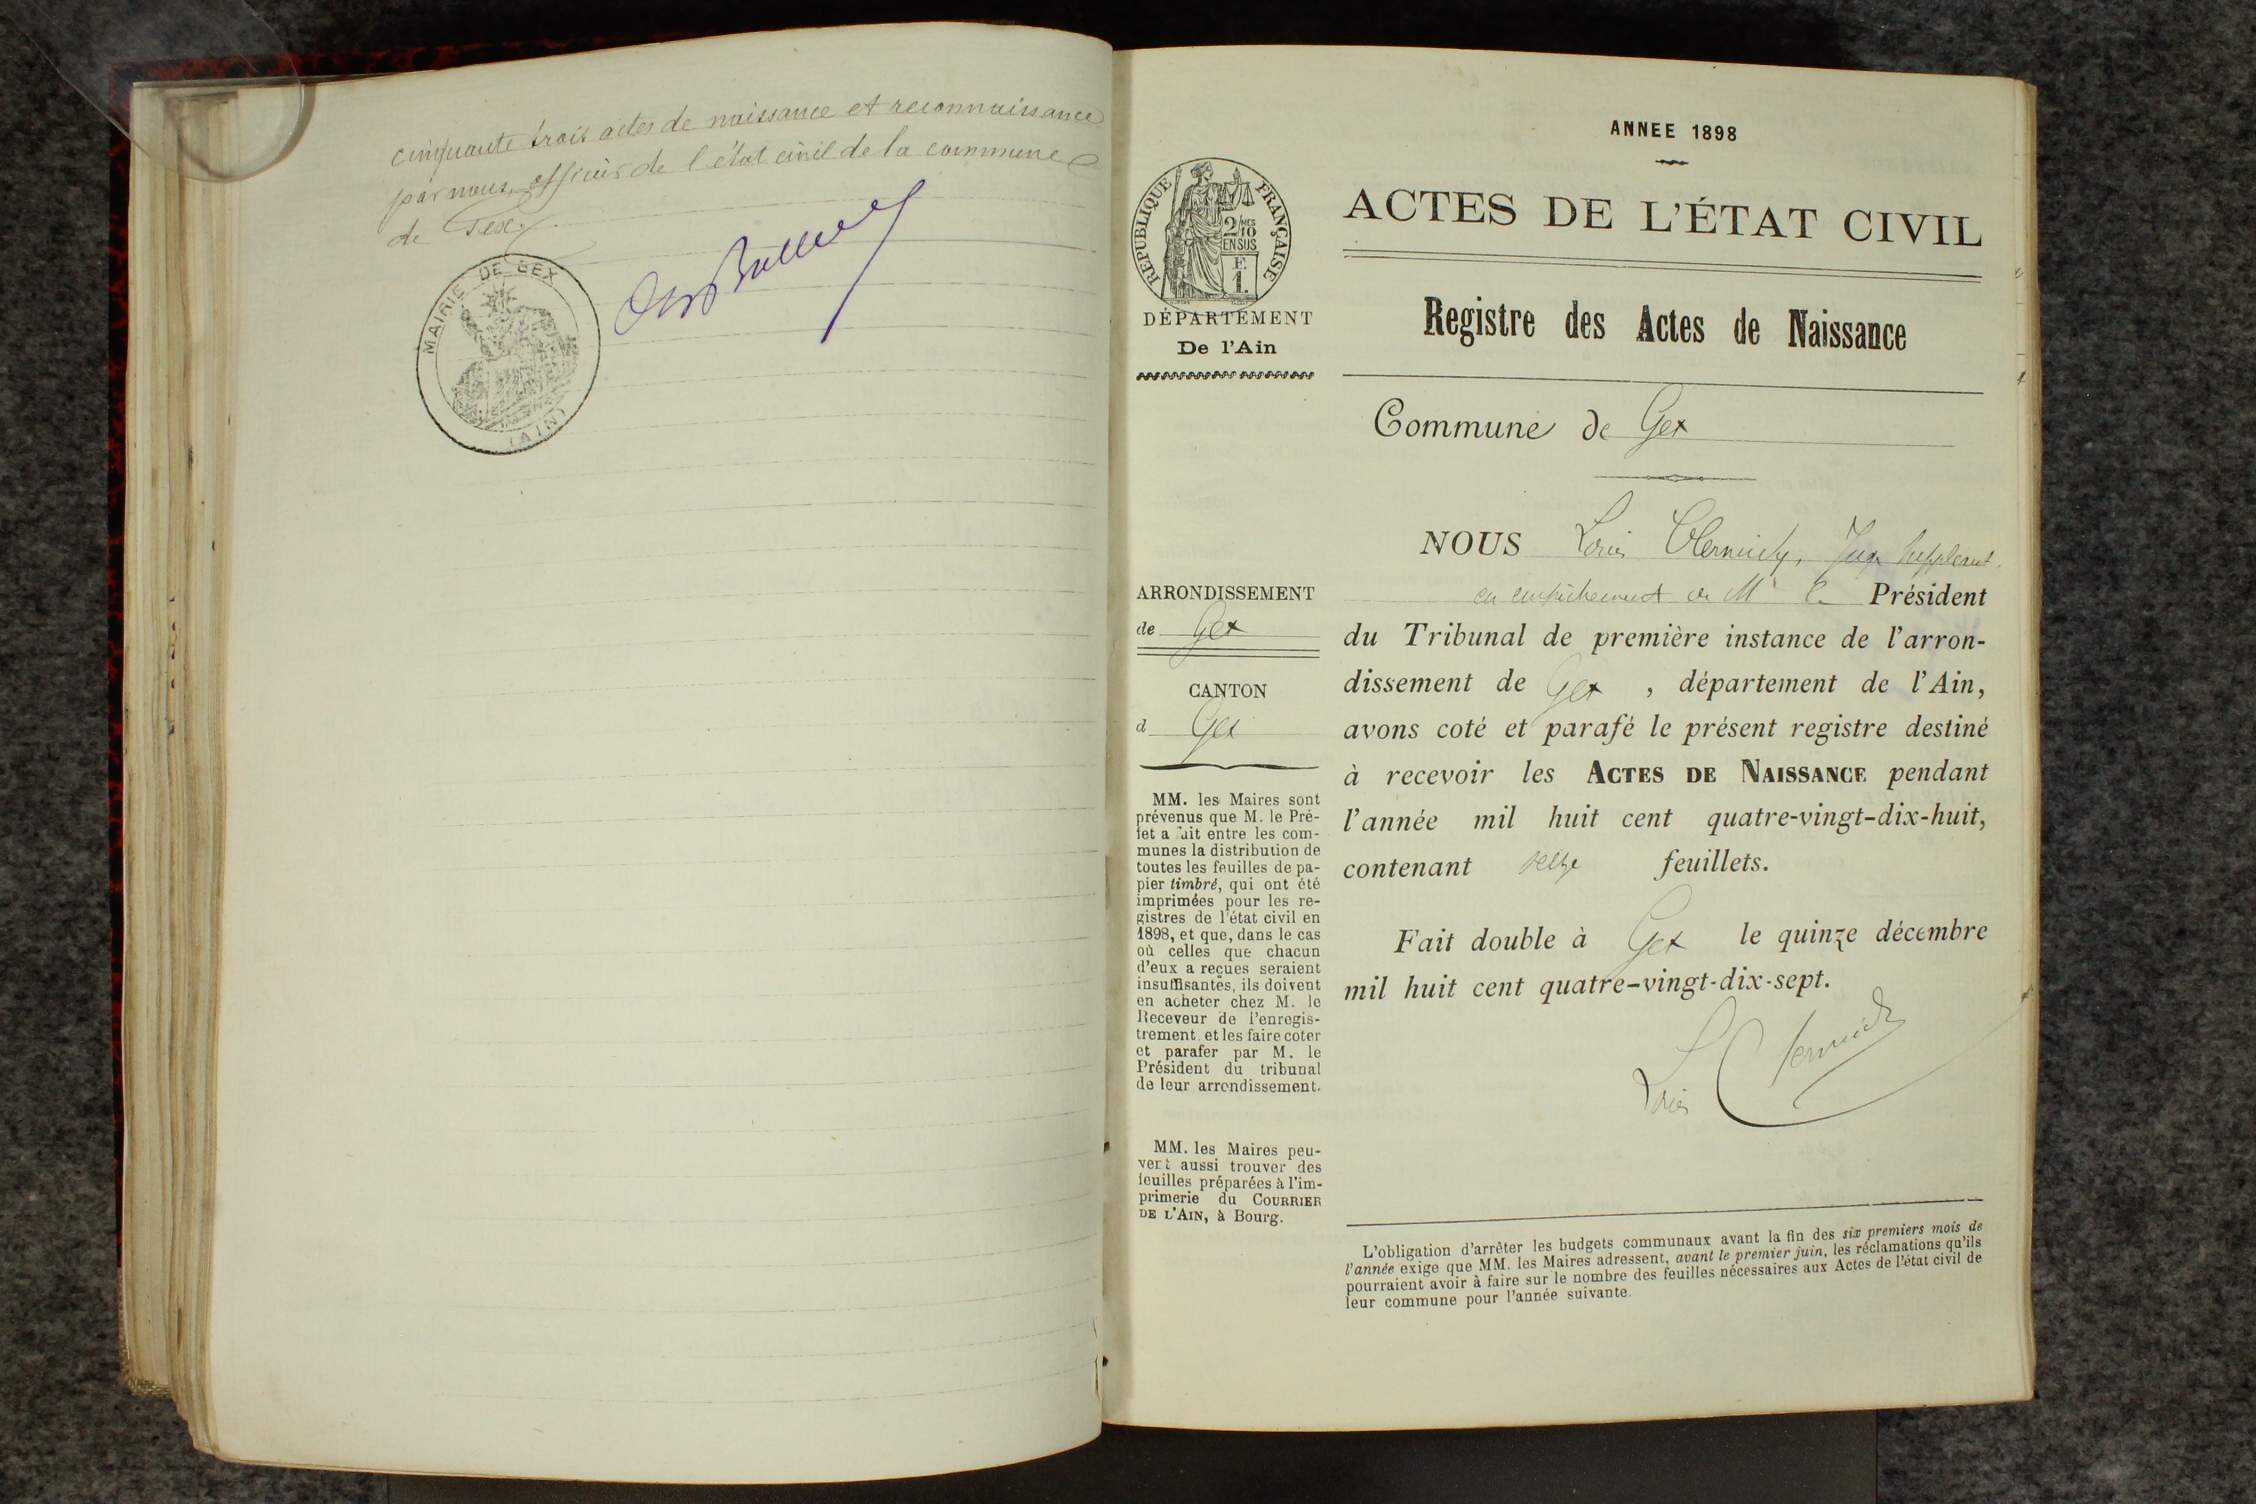 cinquante trois actes de naissance et reconnaissance
par nous, officier de l'état civil de la commune
de Gex.
MAIRIE DE GEX
(AIN)
ANNEE 1898
RÉPUBLIQUE FRANÇAISE
2/10 MES
EN SUS
F.
1.
DÉPARTEMENT
De l'Ain
ACTES DE L'ÉTAT CIVIL
Registre des Actes de Naissance
Commune de Gex
ARRONDISSEMENT
de Gex
CANTON
d Gex
MM. les Maires sont
prévenus que M. le Pré-
fet a fait entre les com-
munes la distribution de
toutes les feuilles de pa-
pier timbré, qui ont été
imprimées pour les re-
gistres de l'état civil en
1898, et que, dans le cas
où celles que chacun
d'eux a reçues seraient
insuffisantes, ils doivent
en acheter chez M. le
Receveur de l'enregis-
trement, et les faire coter
et parafer par M. le
Président du tribunal
de leur arrondissement.
MM. les Maires peu-
vent aussi trouver des
feuilles préparées à l'im-
primerie du COURRIER
DE L'AIN, à Bourg.
NOUS Louis Juge suppléant
en empêchement de Mr le Président
du Tribunal de première instance de l'arron-
dissement de Gex , département de l'Ain,
avons coté et parafé le présent registre destiné
à recevoir les ACTES DE NAISSANCE pendant
l'année mil huit cent quatre-vingt-dix-huit,
contenant seize feuillets.
Fait double à Gex le quinze décembre
mil huit cent quatre-vingt-dix-sept.
Louis
L'obligation d'arrêter les budgets communaux avant la fin des six premiers mois de
l'année exige que MM. les Maires adressent, avant le premier juin, les réclamations qu'ils
pourraient avoir à faire sur le nombre des feuilles nécessaires aux Actes de l'état civil de
leur commune pour l'année suivante.